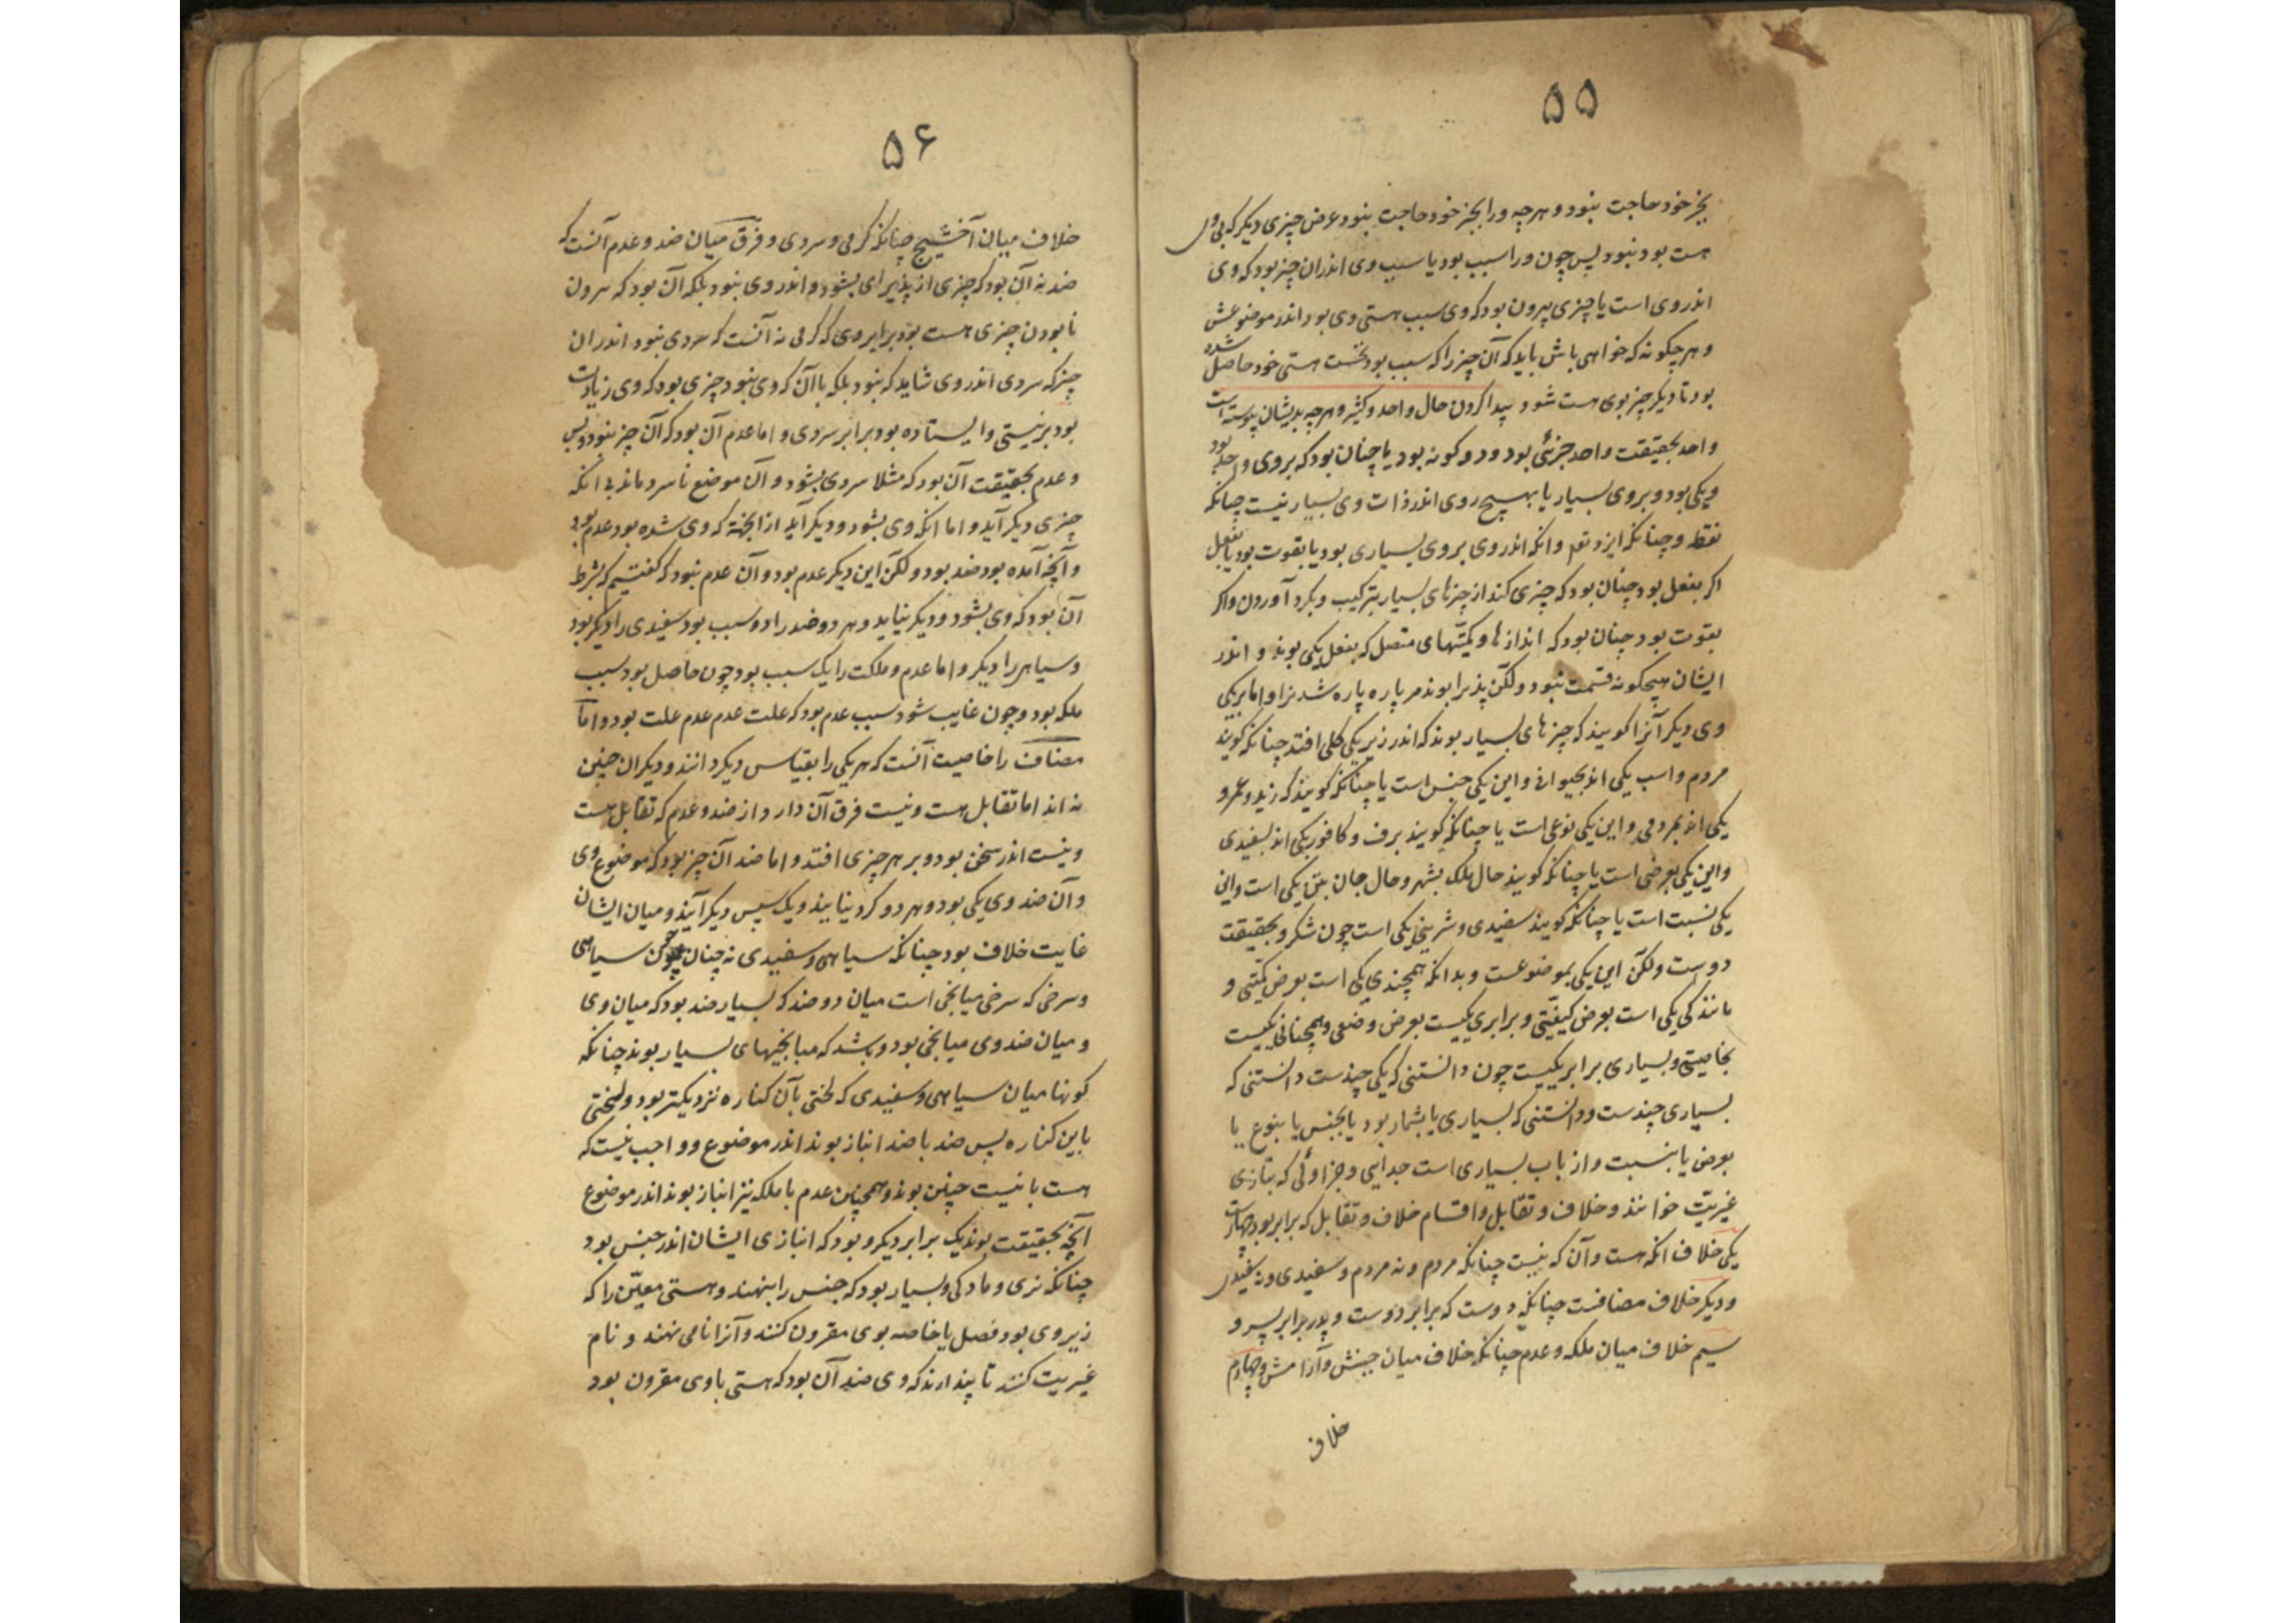 ۵۵
بجز خود حاجت نبود و هرچه ورا بجز خود حاجت نبود عرض چیزی دیگر که بی وی
هست بود نبود پس چون ورا سبب بود یا سبب وی اندران چیز بود که وی
اندر وی است یا چیزی بیرون بود که وی سبب هستی وی بود اندر موضوعش
و هر چگونه که خواهی باش باید که آن چیز را که سبب بود نخست هستی خود حاصل شده
بود تا دیگر چیز بوی هست شود پیدا کردن حال واحد و کثیر و هرچه بدیشان پیوسته است
واحد بحقیقت واحد جزئی بود و دو گونه بود یا چنان بود که بروی واحد بود
و یکی بود و بروی بسیار یا بهیچ روی اندر ذات وی بسیار نیست چنانکه
نقطه و چنانکه ایزد تعم وانکه اندر وی بروی بسیاری بود یا بقوت بود یا بفعل
اکر بفعل بود چنان بود که چیزی کند از چیزهای بسیار بترکیب و بکرد آوردن واکر
بقوت بود چنان بود که اندازها و کمیّتهای متصل که بفعل یکی بوند و اندر
ایشان هیچکونه قسمت نبود ولکن پذیرا بوند مر پاره پاره شدن را واما بریکی
وی دیگر آنرا کویند که چیزهای بسیار بوند که اندر زیر یکی کلی افتد چنانکه کویند
مردم و اسب یکی اند بحیوانی و این یکی جنس است یا چنانکه کویند که زید و عمرو
یکی اند بمردمی و این یکی نوعی است یا چنانکه کویند برف و کافور یکی اند بسفیدی
و این یکی بعرضی است یا چنانکه کویند حال ملک بشهر و حال جان بتن یکی است و این
یکی نسبت است یا چنانکه کویند سفیدی و شرینی یکی است چون شکر و بحقیقت
دوست ولکن این یکی بموضوعست و بدانکه همچندی یکی است بعرض کمیّتی و
مانندکی یکی است بعرض کیفیّتی و برابری یکیست بعرض وضعی و همچنانی یکیست
بخاصیتی و بسیاری برابر یکیست چون دانستنی که یکی چندست دانستنی که
بسیاری چندست و دانستنی که بسیاری یا بشمار بود یا بجنس یا بنوع یا
بعرض یا بنسبت و از باب بسیاری است جدایی و جزاوئی که بتازی
غیریّت خوانند و خلاف و تقابل و اقسام خلاف و تقابل که برابر بود چهارست
یکی خلاف انکه هست وآن که نیست چنانکه مردم و نه مردم و سفیدی و نه سفیدی
و دیکر خلاف مضافست چنانکه دوست که برابر دوست و پدر برابر پسر و
سیم خلاف میان ملکه و عدم چنانکه خلاف میان جنبش و آرامش و چهارم
خلاف
۵۶
خلاف میان آخشیج چنانکه کرمی و سردی و فرق میان ضد و عدم آنست که
ضد نه آن بود که چیزی از پذیرای بشود و اندر وی نبود بلکه آن بود که بیرون
نابودن چیزی هست بود برابر وی که کرمی نه آنست که سردی نبود اندران
چیز که سردی اندر وی شاید که نبود بلکه با آن که وی نبود چیزی بود که وی زیادت
بود بر نیستی و ایستاده بود برابر سردی و اما عدم آن بود که آن چیز نبود و بس
و عدم بحقیقت آن بود که مثلا سردی بشود و آن موضع نا سرد ماند بی انکه
چیزی دیکر آید و اما انکه وی بشود و دیکر آید از انچه که وی شده بود عدم بود
وآنچه آمده بود ضد بود ولکن این دیکر عدم بود و آن عدم نبود که کفتیم که شرط
آن بود که وی بشود و دیکر نیاید و هر دو ضد را دو سبب بود سفیدی را دیکر بود
و سیاهی را دیکر و اما عدم و ملکت را یک سبب بود چون حاصل بود سبب
ملکه بود و چون غایب شود سبب عدم بود که علت عدم عدم علت بود و اما
مضاف را خاصیت آنست که هر یکی را بقیاس دیکر دانند و دیکران چنین
نه اند اما تقابل هست و نیست فرق آن دارد از ضد و عدم که تقابل هست
و نیست اندر سخن بود و بر هر چیزی افتد و اما ضد آن چیز بود که موضوع وی
وآن ضد وی یکی بود و هر دو کرد نیایند و یک سپس دیکر آیند و میان ایشان
غایت خلاف بود چنانکه سیاهی و سفیدی نه چنان چون سیاهی
و سرخی که سرخی میانجی است میان دو ضد که بسیار ضد بود که میان وی
و میان ضد وی میانجی بود و باشد که میانجیهای بسیار بوند چنانکه
کونها میان سیاهی و سفیدی که لختی بآن کناره نزدیکتر بود و لختی
باین کناره پس ضد با ضد انباز بوند اندر موضوع و واجب نیست که
هست با نیست چنین بوند و همچنین عدم با ملکه نیز انباز بوند اندر موضوع
آنچه بحقیقت بوند یک برابر دیکر و بود که انبازی ایشان اندر جنس بود
چنانکه نری و مادکی و بسیار بود که جنس را بنهند و هستی معیّن را که
زیر وی بود فصل یا خاصه بوی مقرون کنند و آنرا نامی نهند و نام
غیریت کنند تا پندارند که وی ضد آن بود که هستی با وی مقرون بود